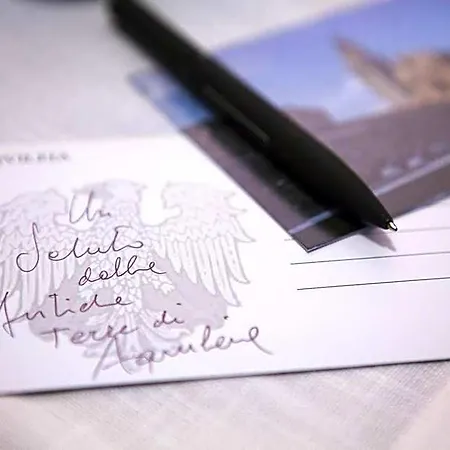 VILEIA
Un
Saluto
dalle
Antiche
Terre di
Aquileia